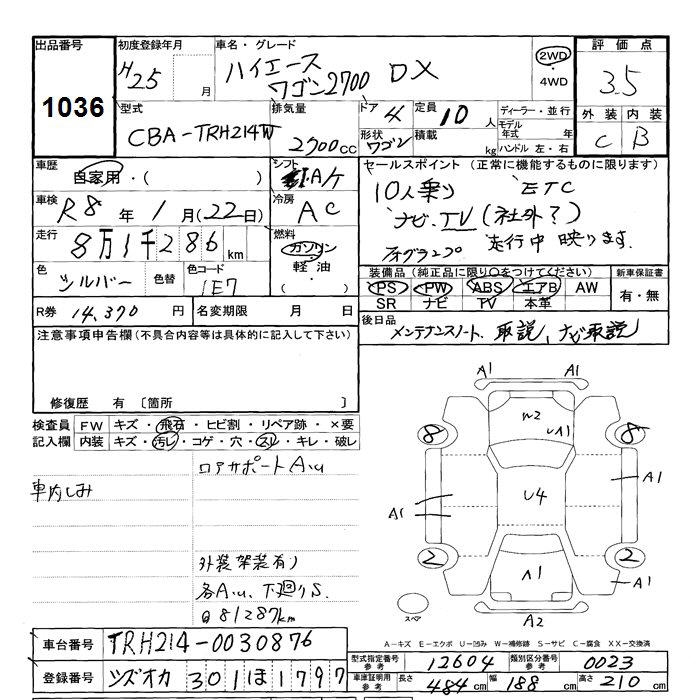 出品番号 初度登録年月 車名・グレード 評価点
1036 H25 月 ハイエース ワゴン2700 DX 2WD・4WD 3.5
型式 排気量 ドア 4 定員 10人 ディーラー・並行 外装 内装
CBA-TRH214W 2700cc 形状 ワゴン 積載 kg モデル年式 年式 ハンドル 左・右 C B
車歴 自家用・( ) シフト IAT セールスポイント (正常に機能するものに限ります)
車検 R8年 1月(22日) 冷房 AC 10人乗り ETC
ナビ.TV(社外?)
走行 8万1千286km 燃料 ガソリン 軽油・( ) フォグランプ 走行中 映ります.
色 シルバー 色替 色コード 1E7
装備品 (純正品に限り○をつけてください) 新車保証書
PS PW ABS エアB AW 有・無
SR ナビ TV 本革
R券 14,370円 名変期限 月 日
後日品 メンテナンスノート. 取説、ナビ取説
注意事項申告欄 (不具合内容等は具体的に記入して下さい)
修復歴 有 〔箇所 〕
検査員記入欄 FW キズ・飛石・ヒビ割・リペア跡・×要
内装 キズ・汚レ・コゲ・穴・スレ・キレ・破レ
車内しみ
外装架装有り
各AU、下廻りS.
81287km
A1 A1
W2 U1
8 8
A1 U4 A1
2 2
A1 A1
スペア A2
A-キズ E-エクボ U-凹み W-補修跡 S-サビ C-腐食 XX-交換済
車台番号 TRH214-0030876
登録番号 シズオカ 301 ほ 1797
型式指定番号 参考 12604 類別区分番号 参考 0023
車庫証明用 参考 長さ 484cm 幅 188cm 高さ 210cm